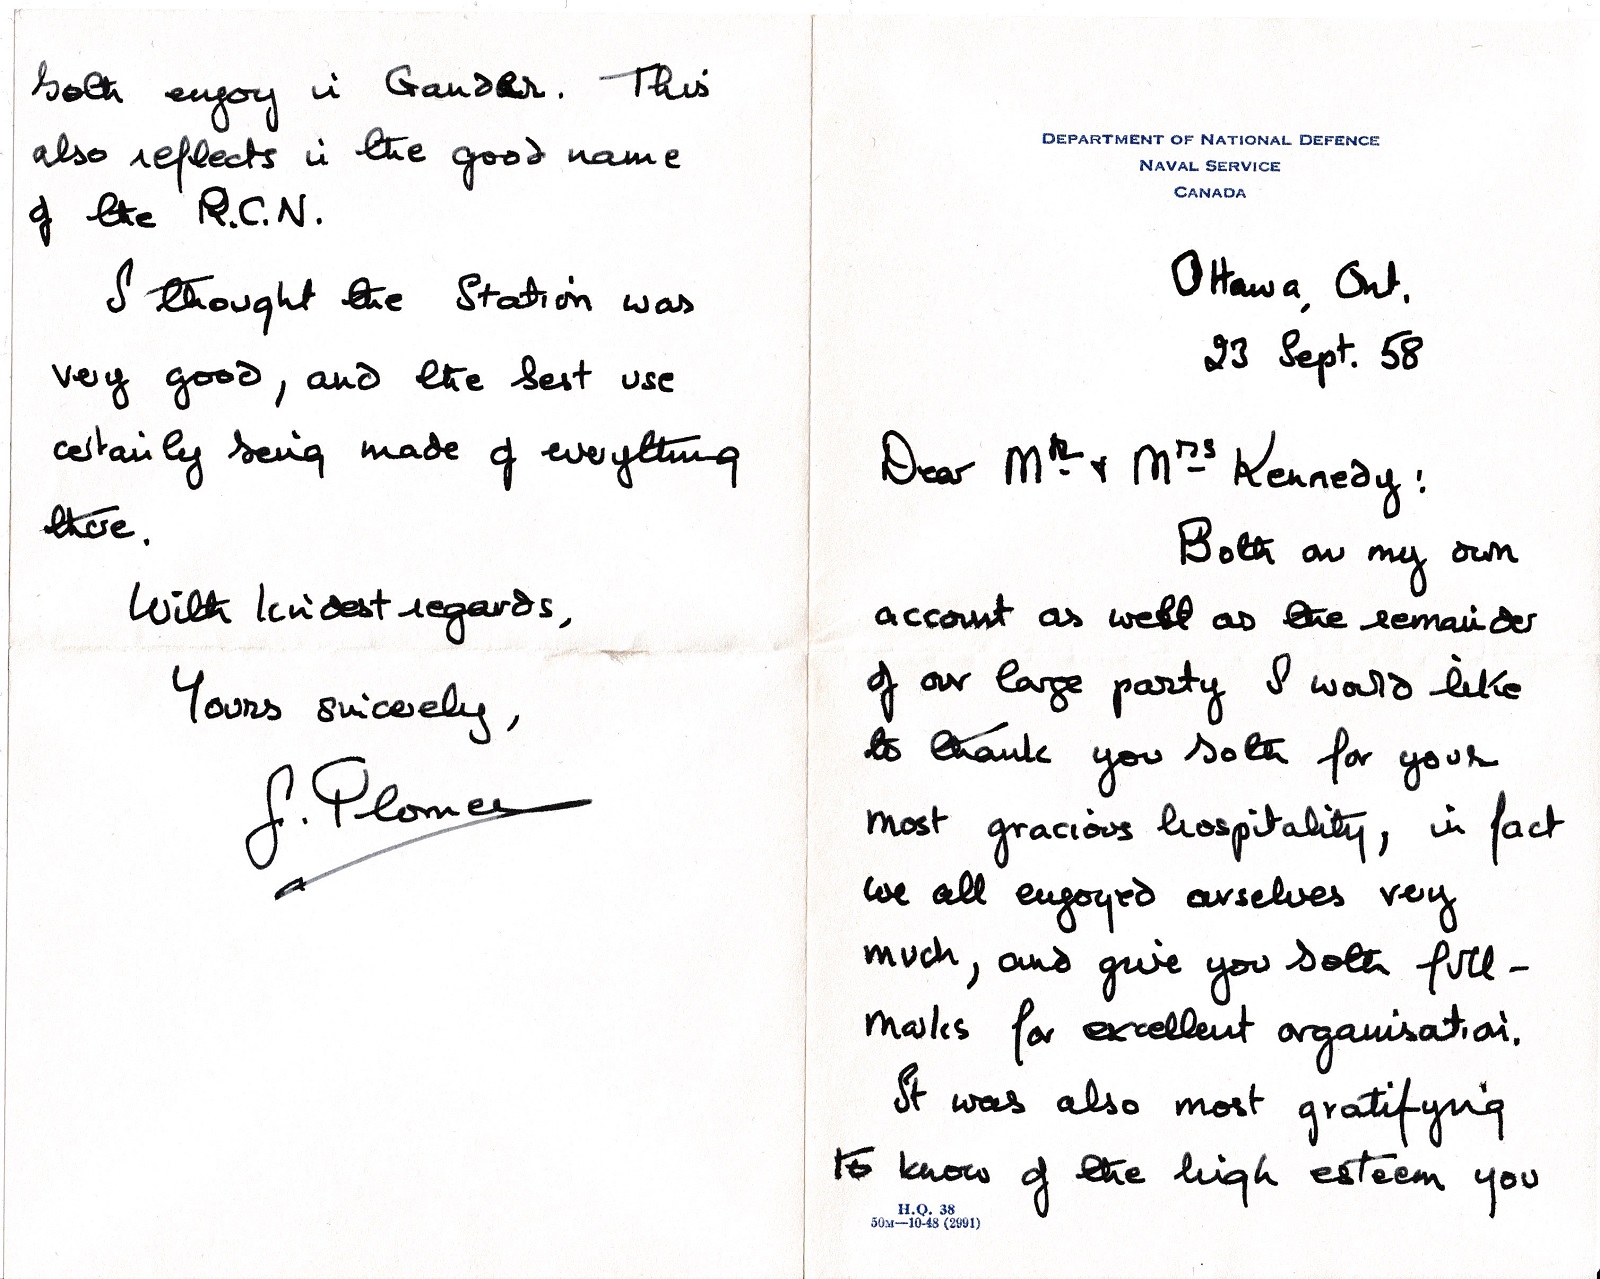 DEPARTMENT OF NATIONAL DEFENCE
NAVAL SERVICE
CANADA
Ottawa, Ont.
23 Sept. 58
Dear Mr & Mrs Kennedy:
Both on my own
account as well as the remainder
of our large party I would like
to thank you both for your
most gracious hospitality, in fact
we all enjoyed ourselves very
much, and give you both full-
marks for excellent organisation.
It was also most gratifying
to know of the high esteem you
H.Q. 38
50M—10-48 (2991)
both enjoy in Gander. This
also reflects in the good name
of the R.C.N.
I thought the Station was
very good, and the best use
certainly being made of everything
there.
With kindest regards,
Yours sincerely,
J. Plomer